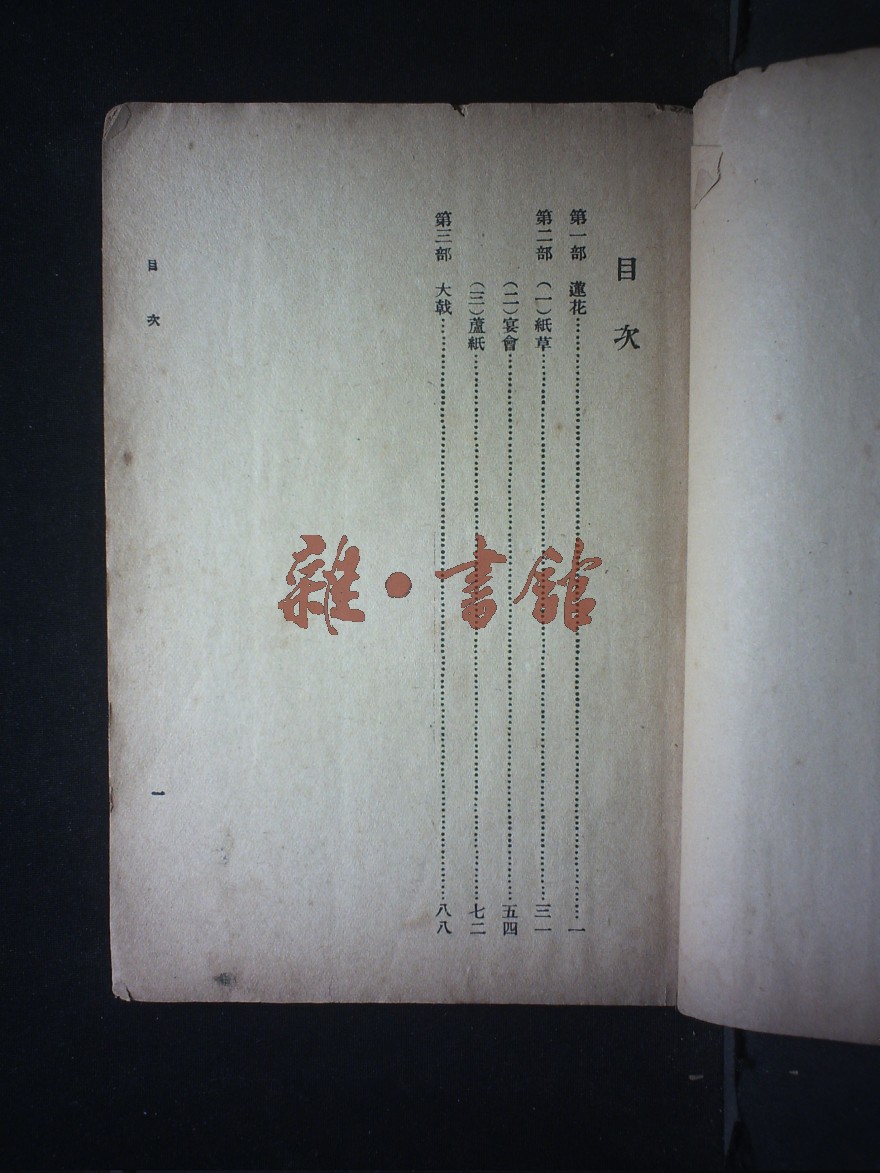 目次
第一部 蓮花……一
第二部 (一)紙草……三一
(二)宴會……五四
(三)蘆紙……七二
第三部 大戟……八八
目次 一
雜·書館